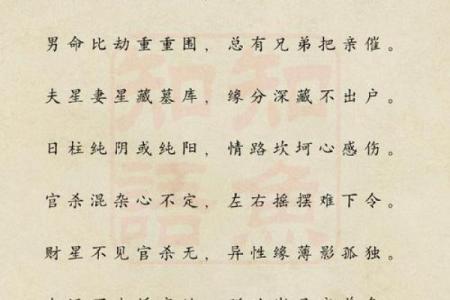 男命比劫重重围，总有兄弟把亲催。
夫星妻星藏墓库，缘分深藏不出户。
日柱纯阴或纯阳，情路坎坷心感伤。
官杀混杂心不定，左右摇摆难下令。
财星不见官杀无，异性缘薄影孤独。